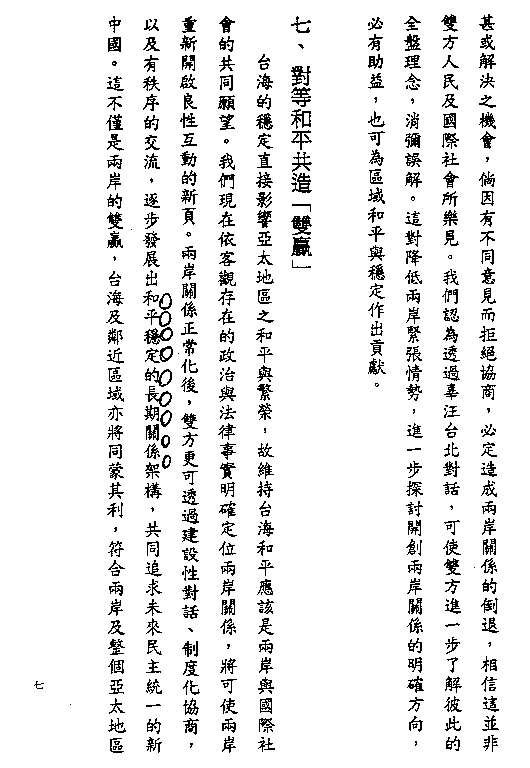 甚或解決之機會，倘因有不同意見而拒絕協商，必定造成兩岸關係的倒退，相信這並非
雙方人民及國際社會所樂見。我們認為透過辜汪台北對話，可使雙方進一步了解彼此的
全盤理念，消彌誤解。這對降低兩岸緊張情勢，進一步探討開創兩岸關係的明確方向，
必有助益，也可為區域和平與穩定作出貢獻。
七、對等和平共造「雙贏」
台海的穩定直接影響亞太地區之和平與繁榮，故維持台海和平應該是兩岸與國際社
會的共同願望。我們現在依客觀存在的政治與法律事實明確定位兩岸關係，將可使兩岸
重新開啟良性互動的新頁。兩岸關係正常化後，雙方更可透過建設性對話、制度化協商，
以及有秩序的交流，逐步發展出和平穩定的長期關係架構，共同追求未來民主統一的新
中國。這不僅是兩岸的雙贏，台海及鄰近區域亦將同蒙其利，符合兩岸及整個亞太地區
七